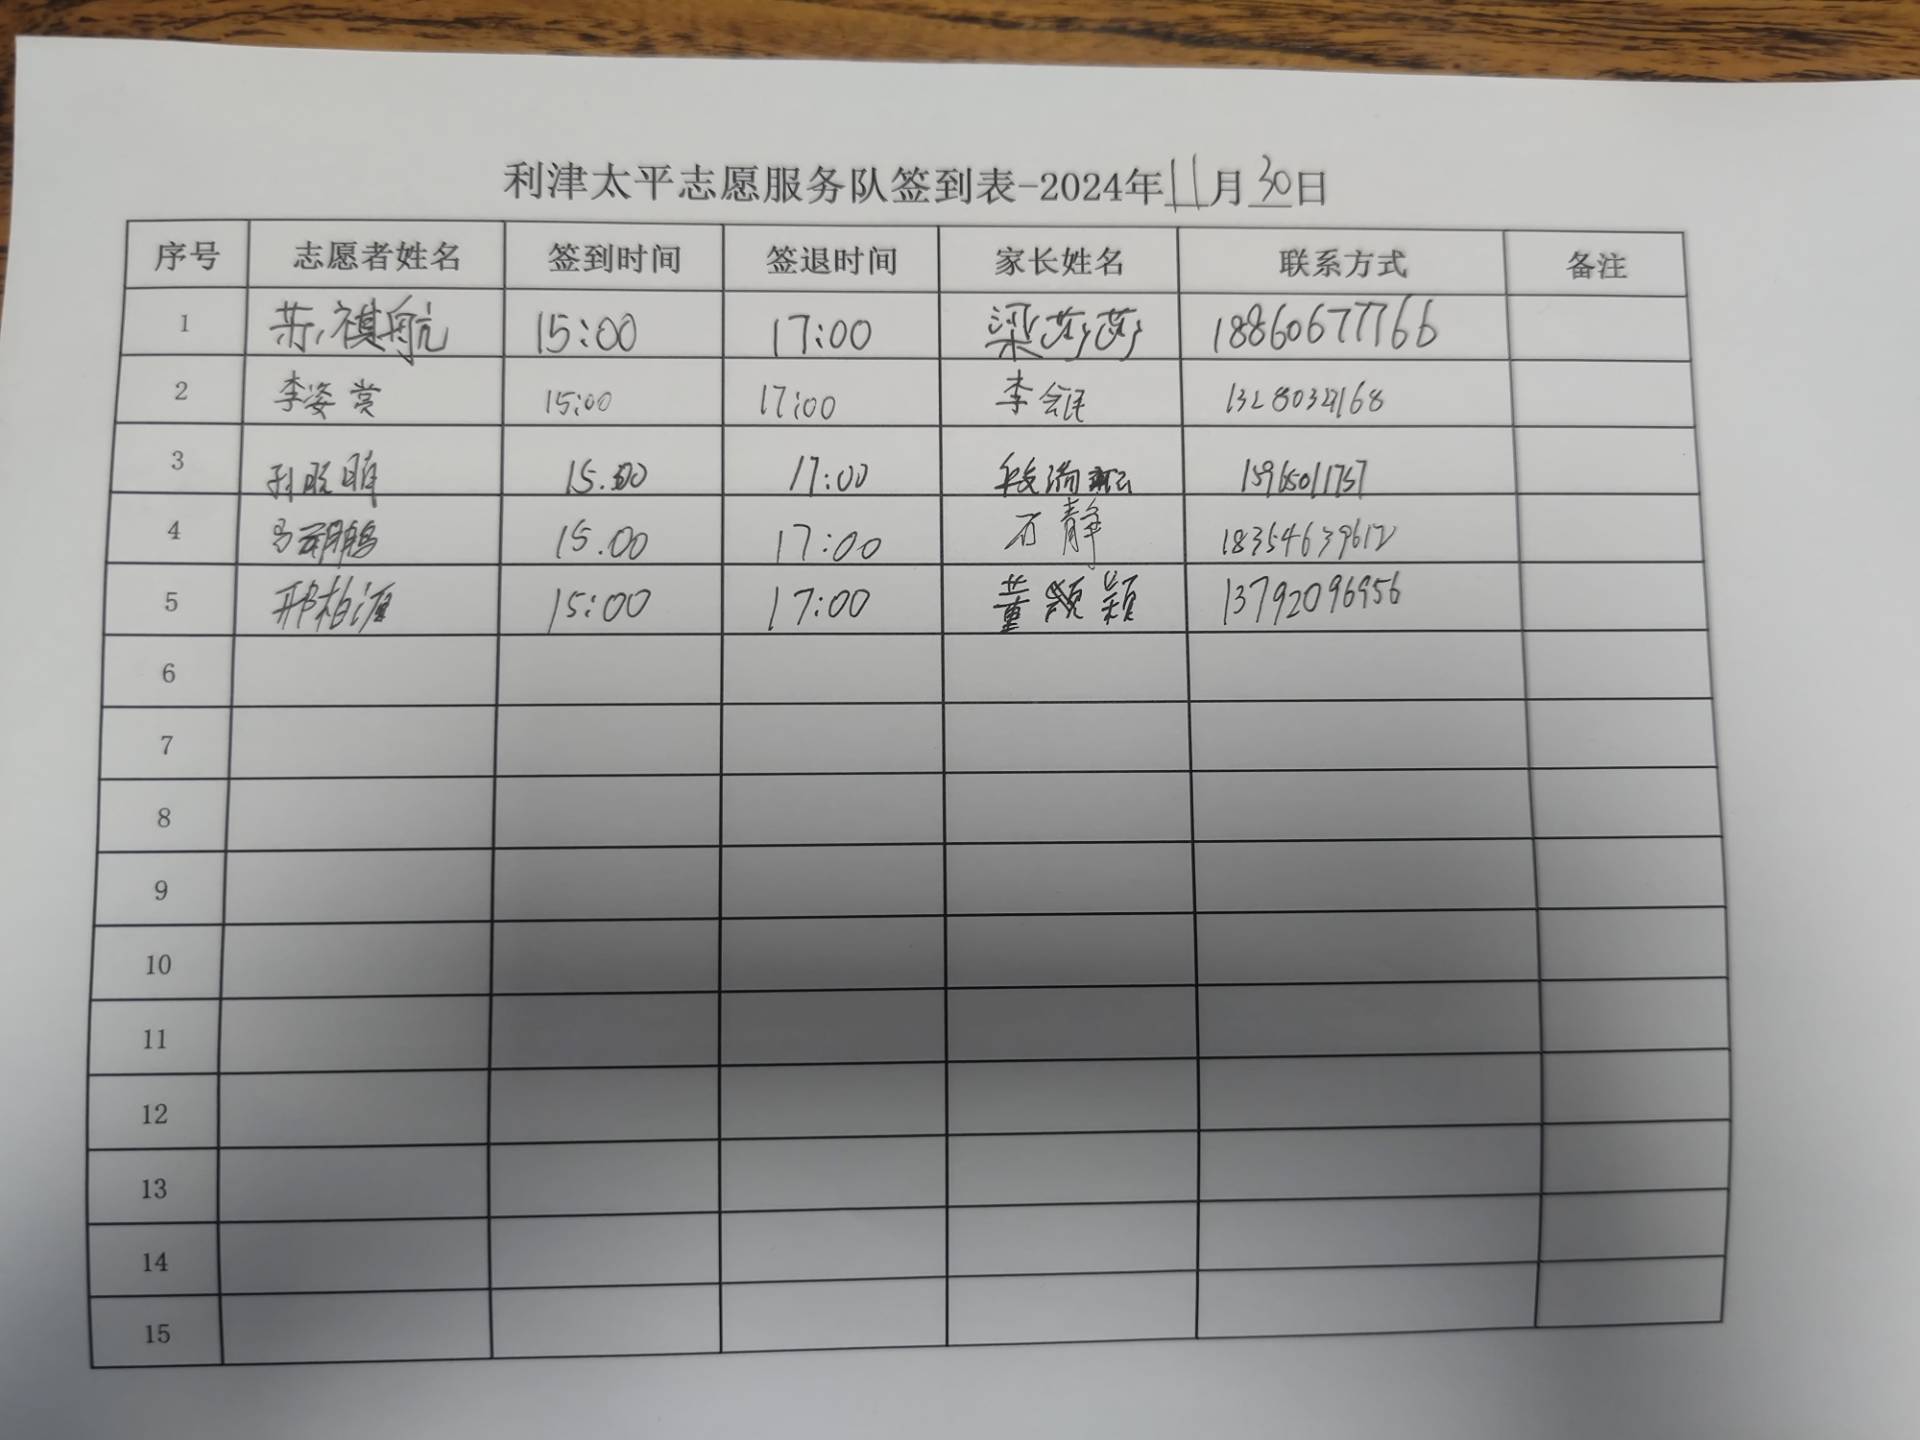 利津太平志愿服务队签到表-2024年11月30日
序号 志愿者姓名 签到时间 签退时间 家长姓名 联系方式 备注
1 苏祺航 15:00 17:00 梁莎莎 18860677766
2 李姿赏 15:00 17:00 李
3 孙 15.00 17:00 段瑞 15965011757
4 马 15.00 17:00 石静 18354639612
5 邢柏涵 15:00 17:00 董颖 13792096956
6
7
8
9
10
11
12
13
14
15